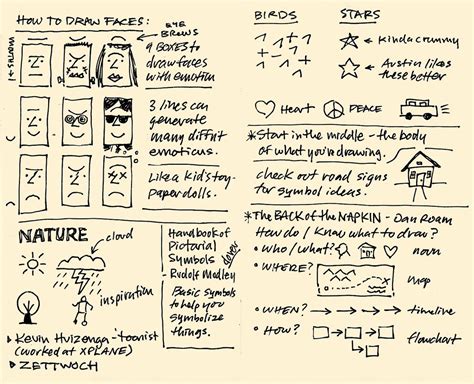 HOW TO DRAW FACES:
EYE
BROWS
MOUTHS
9 BOXES to
draw faces
with emotion
3 lines can
generate
many diffnt
emoticus.
Like a kid's toy-
paper dolls.
NATURE
cloud
inspiration
Handbook of
Pictorial
Symbols
dover
Rudolf Modley
Basic symbols
to help you
symbolize
things.
Kevin Huizenga-'toonist
(worked at XPLANE)
ZETTWOCH
BIRDS
STARS
Kinda crummy
Austin likes
these better
Heart
PEACE
*Start in the middle - the body
of what you're drawing.
check out road signs
for symbol ideas.
*The BACK of the NAPKIN - Dan Roam
How do I know what to draw?
• Who/what?
noun
• WHERE?
map
• WHEN?
timeline
• How?
flowchart